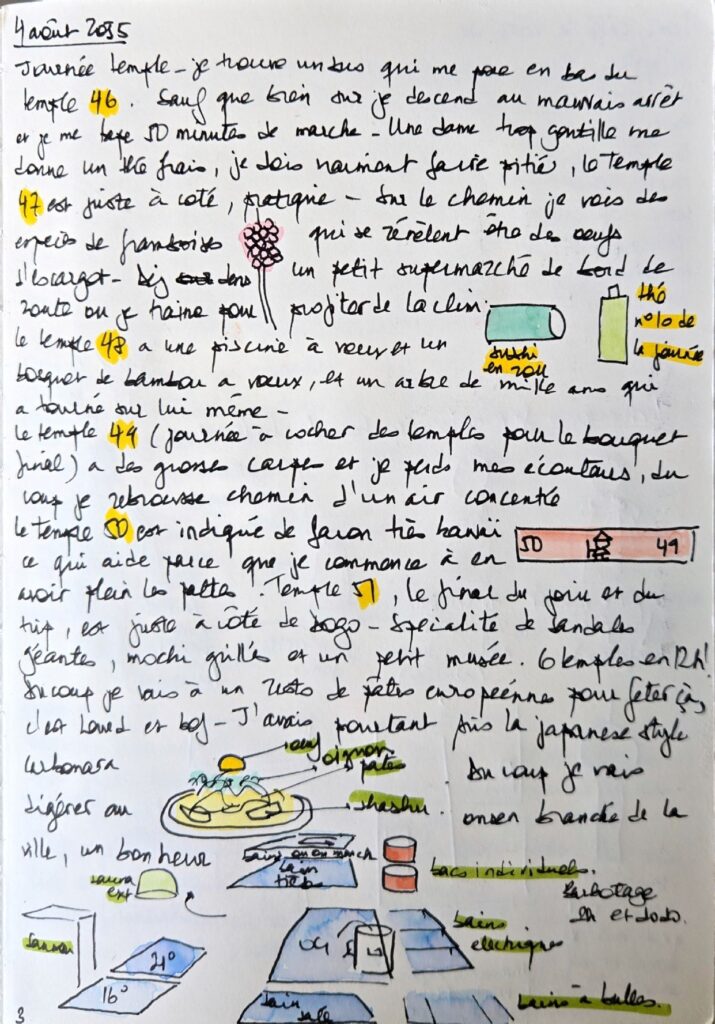 4 août 2025
Journée temple - je trouve un bus qui me pose en bas du
temple 46. Sauf que bien sur je descend au mauvais arrêt
et je me tape 50 minutes de marche - Une dame trop gentille me
donne un thé frais, je dois vraiment faire pitié, le temple
47 est juste à coté, pratique - Sur le chemin je vois des
especes de framboises qui se révèlent être des oeufs
d'escargot - dans un petit supermarché de bord de
route ou je traine pour profiter de la clim.
thé
n°10 de
la journée
sushi
en
le temple 48 a une piscine à voeux et un
bosquet de bambou a voeux, et un arbre de mille ans qui
a tourné sur lui même -
Le temple 49 (journée à cocher des temples pour le bouquet
final) a des grosses carpes et je perds mes écouteurs, du
coup je rebrousse chemin d'un air concentré
Le temple 50 est indiqué de facon très kawaï
50 49
ce qui aide parce que je commence à en
avoir plein les pattes. Temple 51, le final du jour et du
trip, est juste à côté de Dogo - Spécialité de sandales
géantes, mochi grillés et un petit musée. 6 temples en 12h!
Du coup je vais à un resto de pâtes européennes pour feter ça,
c'est lourd et bof - J'avais pourtant pris la japanese style
carbonara
oeuf
oignon
pates
shashu
Du coup je vais
digérer au onsen branché de la
ville, un bonheur
bain tiède
bacs individuels.
sauna
ext
Barbotage
2h et dodo.
sauna
21°
16°
bains
electriques
bain
salé
bains à bulles.
3